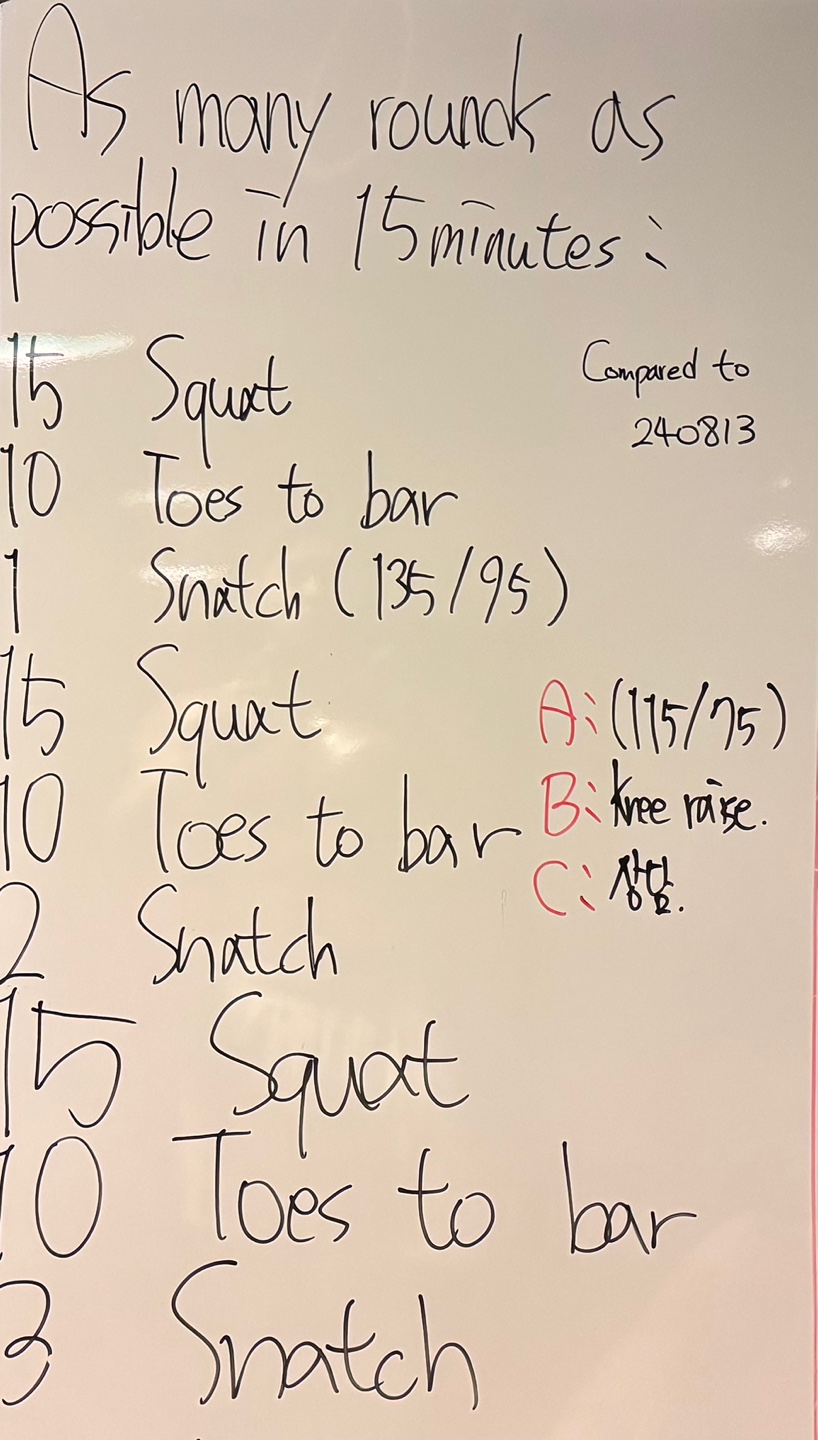 As many rounds as
possible in 15 minutes:
15 Squat
Compared to
240813
10 Toes to bar
1 Snatch (135/95)
15 Squat
A: (115/75)
10 Toes to bar
B: Knee raise.
C: 상담.
2 Snatch
15 Squat
10 Toes to bar
3 Snatch